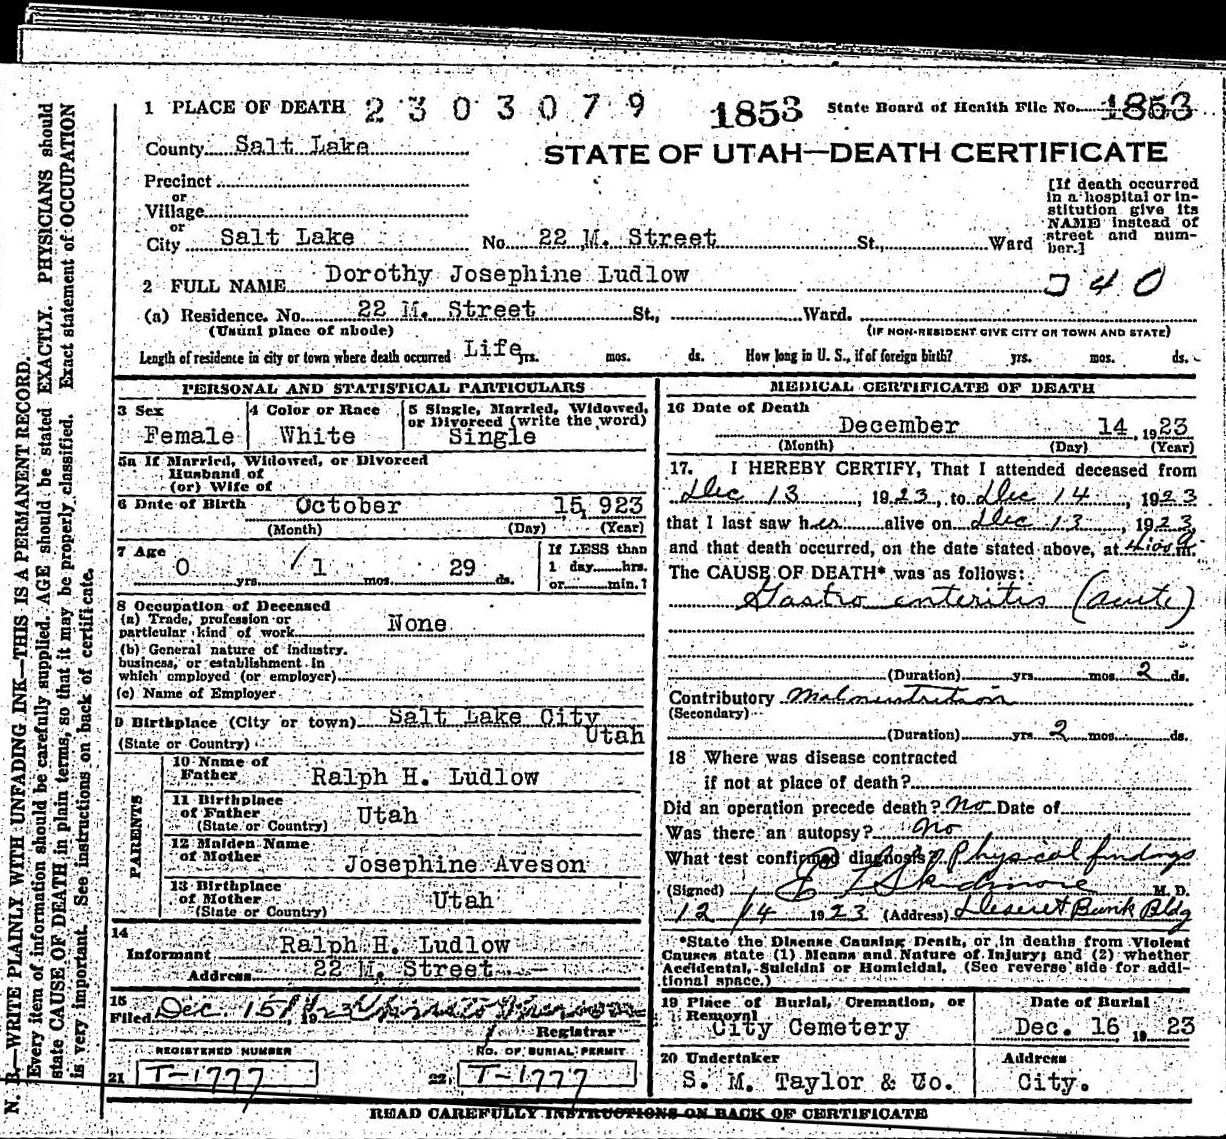 1 PLACE OF DEATH 2303079 1853 State Board of Health File No. 1853
County Salt Lake
STATE OF UTAH—DEATH CERTIFICATE
Precinct
or
Village
or
City Salt Lake No. 22 M. Street St., Ward
[If death occurred
in a hospital or in-
stitution give its
NAME instead of
street and num-
ber.]
2 FULL NAME Dorothy Josephine Ludlow
(a) Residence. No. 22 M. Street St., Ward.
(Usual place of abode) (IF NON-RESIDENT GIVE CITY OR TOWN AND STATE)
Length of residence in city or town where death occurred Life yrs. mos. ds. How long in U. S., if of foreign birth? yrs. mos. ds.
PERSONAL AND STATISTICAL PARTICULARS
3 Sex Female
4 Color or Race White
5 Single, Married, Widowed,
or Divorced (write the word)
Single
5a If Married, Widowed, or Divorced
Husband of
(or) Wife of
6 Date of Birth October 15, 923
(Month) (Day) (Year)
7 Age 0 yrs. 1 mos. 29 ds.
If LESS than
1 day hrs.
or min.?
8 Occupation of Deceased
(a) Trade, profession or
particular kind of work None
(b) General nature of industry,
business, or establishment in
which employed (or employer)
(c) Name of Employer
9 Birthplace (City or town) Salt Lake City
Utah
(State or Country)
PARENTS
10 Name of
Father Ralph H. Ludlow
11 Birthplace
of Father Utah
(State or Country)
12 Maiden Name
of Mother Josephine Aveson
13 Birthplace
of Mother Utah
(State or Country)
14
Informant Ralph H. Ludlow
Address 22 M. Street
15
Filed Dec 15
Registrar
REGISTERED NUMBER NO. OF BURIAL PERMIT
21 T-1777 22 T-1777
MEDICAL CERTIFICATE OF DEATH
16 Date of Death
December 14, 1923
(Month) (Day) (Year)
17. I HEREBY CERTIFY, That I attended deceased from
Dec 13, 1923, to Dec 14, 1923
that I last saw her alive on Dec 13, 1923,
and that death occurred, on the date stated above, at 4:00 a m.
The CAUSE OF DEATH* was as follows:
Gastro enteritis (acute)
(Duration) yrs. mos. 2 ds.
Contributory Malnutrition
(Secondary)
(Duration) yrs. 2 mos. ds.
18 Where was disease contracted
if not at place of death?
Did an operation precede death? No Date of
Was there an autopsy? No
What test confirmed diagnosis? Physical findings
(Signed) E L Skidmore M. D.
12/14 1923 (Address) Deseret Bank Bldg
*State the Disease Causing Death, or in deaths from Violent
Causes state (1) Means and Nature of Injury; and (2) whether
Accidental, Suicidal or Homicidal. (See reverse side for addi-
tional space.)
19 Place of Burial, Cremation, or
Removal
City Cemetery
Date of Burial
Dec. 16 19 23
20 Undertaker
S. M. Taylor & Co.
Address
City.
READ CAREFULLY INSTRUCTIONS ON BACK OF CERTIFICATE
N. B.—WRITE PLAINLY WITH UNFADING INK—THIS IS A PERMANENT RECORD.
Every item of information should be carefully supplied. AGE should be stated EXACTLY. PHYSICIANS should
state CAUSE OF DEATH in plain terms, so that it may be properly classified. Exact statement of OCCUPATION
is very important. See instructions on back of certificate.